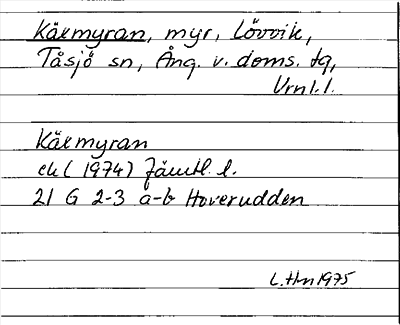 Kälmyran, myr, Lövvik,
Tåsjö sn, Ång. v. doms. tg,
Vrnl. l.
Kälmyran
ek (1974) Jämtl. l.
21 G 2-3 a-b Hoverudden
L. Hn 1975